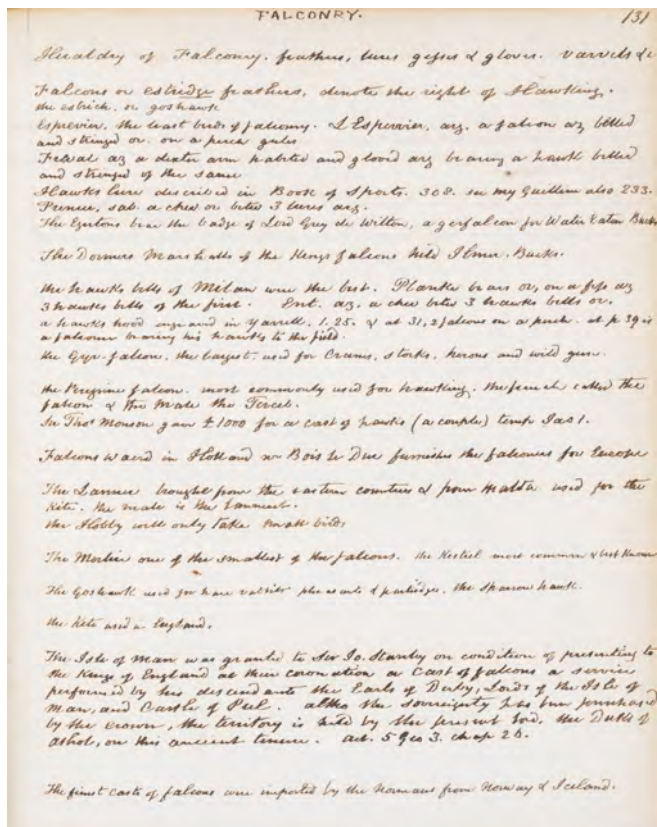 FALCONRY.
131
Heraldry of Falconry. feathers, lures gesses & gloves. varvels &c
Falcons or estridge feathers, denote the right of Hawking.
the estrich, or goshawk
Esprevier, the least birds of falconry. L'Espervier, arg. a falcon az belled
and stringed or. on a perch gules
Fewal az a dexter arm habited and gloved arg bearing a hawk belled
and stringed of the same
Hawks lure described in Book of Sports. 308. see my Guillim also 233.
sab. a chev or betw 3 lures arg.
The Egertons bear the badge of Lord Grey de Wilton, a gerfalcon for Water Eaton Bucks
The Dormers Marshalls of the Kings falcons held Ilmer. Bucks.
the hawks bells of Milan were the best. Planke bears or, on a fess az
3 hawks bells of the first. Ent. az. a chev betw 3 hawks bells or.
a hawks hood engraved in Yarrell, 1.25. & at 31, 2 falcons on a perch. at p 39 is
a falconer bearing his hawks to the field.
the Gyr-falcon, the largest, used for Cranes, storks, herons and wild geese.
the Peregrine falcon. most commonly used for hawking. the female called the
falcon & the male the Tercel.
Sir Thos Monson gave £1000 for a cast of hawks (a couple) temp Jas 1.
Falcons waerd in Holland nr Bois le Duc furnishes the falconers for Europe
The Lanner brought from the eastern countries & from Malta used for the
Kite. the male is the Lanneret.
the Hobby will only take small birds
The Merlin one of the smallest of the falcons. the Kestrel most common & best known
The Goshawk used for hare rabbits pheasants & partridges. the Sparrow hawk.
the Kite used in England.
The Isle of Man was granted to Sir Jo. Stanley on condition of presenting to
the Kings of England at their coronation a cast of falcons a service
performed by his descendants the Earls of Derby, Lords of the Isle of
Man, and Castle of Peel. altho the sovereignty has been purchased
by the crown, the territory is held by the present lord, the Duke of
athol, on this ancient tenure. act. 5 Geo 3. chap 26.
The finest casts of falcons were imported by the Normans from Norway & Iceland.